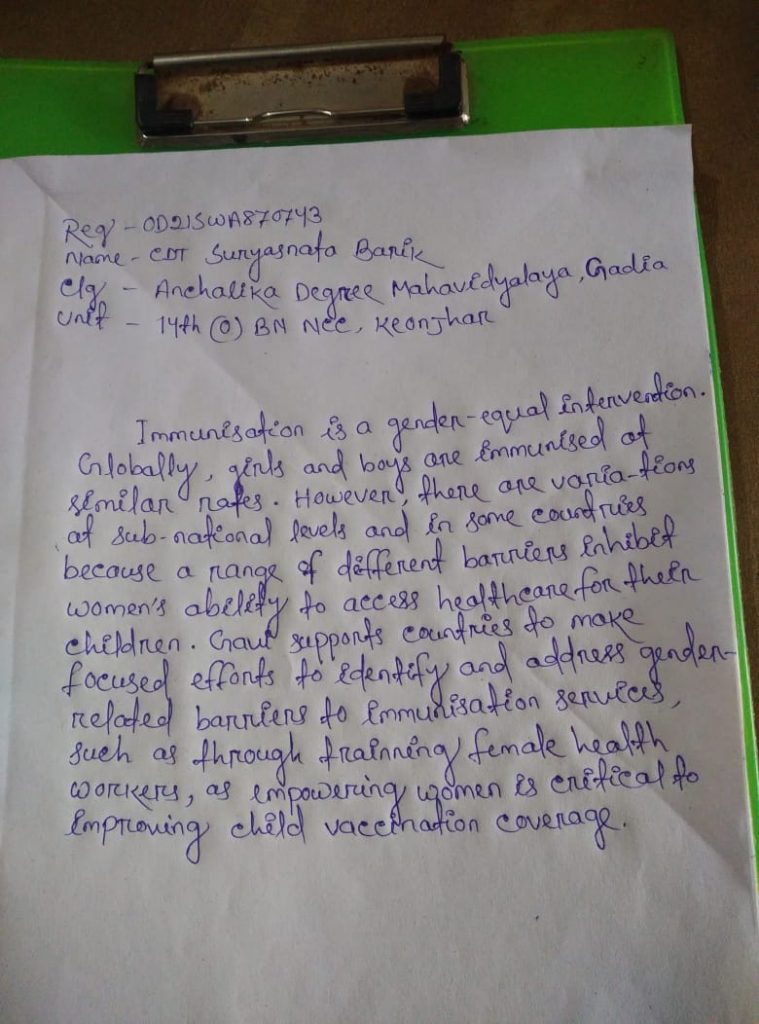 Reg - OD21SWA870743
Name - CDT Suryasnata Barik
Clg - Anchalika Degree Mahavidyalaya, Gadia
Unit - 14th (O) BN NCC, Keonjhar
Immunisation is a gender-equal intervention.
Globally, girls and boys are immunised at
similar rates. However, there are varia-tions
at sub-national levels and in some countries
because a range of different barriers inhibit
women's ability to access healthcare for their
children. Gavi supports countries to make
focused efforts to identify and address gender-
related barriers to immunisation services,
such as through trainning female health
workers, as empowering women is critical to
improving child vaccination coverage.